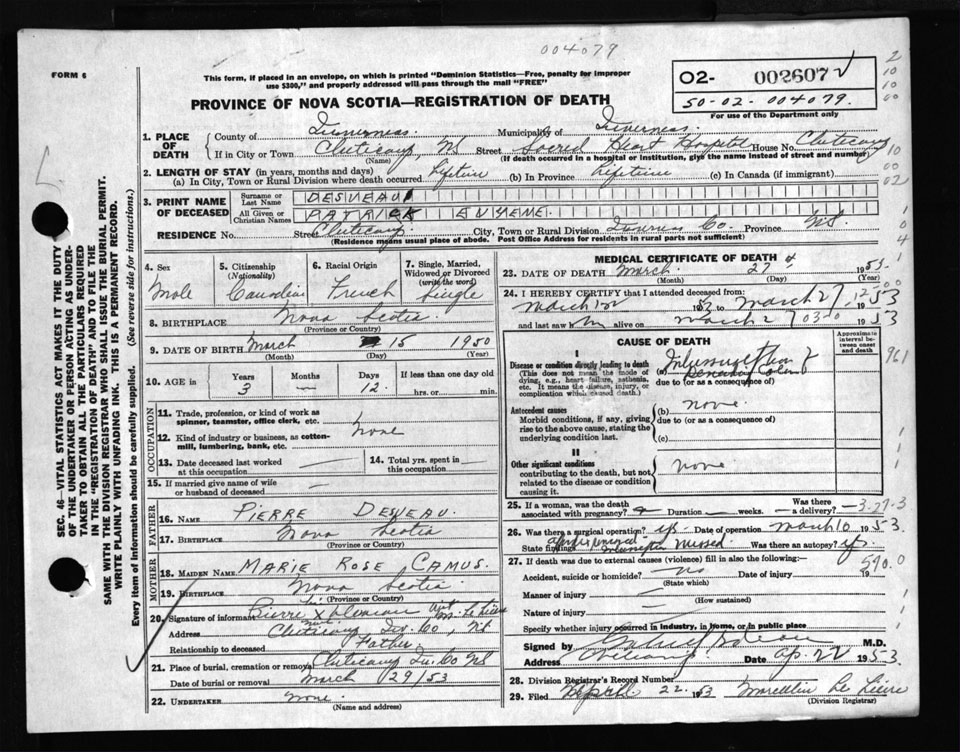 004079
FORM 6
This form, if placed in an envelope, on which is printed "Dominion Statistics—Free, penalty for improper
use $300," and properly addressed will pass through the mail "FREE"
O2- 002607
50-02-004079.
For use of the Department only
PROVINCE OF NOVA SCOTIA—REGISTRATION OF DEATH
SEC. 46—VITAL STATISTICS ACT MAKES IT THE DUTY
OF THE UNDERTAKER OR PERSON ACTING AS UNDER-
TAKER TO OBTAIN ALL THE PARTICULARS REQUIRED
IN THE "REGISTRATION OF DEATH" AND TO FILE THE
SAME WITH THE DIVISION REGISTRAR WHO SHALL ISSUE THE BURIAL PERMIT.
WRITE PLAINLY WITH UNFADING INK. THIS IS A PERMANENT RECORD.
Every item of information should be carefully supplied. (See reverse side for instructions.)
1. PLACE OF DEATH County of Inverness Municipality of Inverness
If in City or Town Cheticamp, NS Street Sacred Heart Hospital House No. Cheticamp
(Name) (If death occurred in a hospital or institution, give the name instead of street and number)
2. LENGTH OF STAY (in years, months and days)
(a) In City, Town or Rural Division where death occurred Lifetime (b) In Province Lifetime (c) In Canada (if immigrant)
3. PRINT NAME OF DECEASED Surname or Last Name DESVEAU
All Given or Christian Names PATRICK EUGENE.
RESIDENCE No. Street Cheticamp City, Town or Rural Division Inverness Co. Province NS.
(Residence means usual place of abode. Post Office Address for residents in rural parts not sufficient)
4. Sex Male
5. Citizenship (Nationality) Canadian
6. Racial Origin French
7. Single, Married, Widowed or Divorced (write the word) Single
8. BIRTHPLACE Nova Scotia
(Province or Country)
9. DATE OF BIRTH March 15 1950
(Month) (Day) (Year)
10. AGE in Years 3 Months — Days 12 If less than one day old hrs. or min.
OCCUPATION
11. Trade, profession, or kind of work as spinner, teamster, office clerk, etc. None
12. Kind of industry or business, as cotton-mill, lumbering, bank, etc.
13. Date deceased last worked at this occupation —
14. Total yrs. spent in this occupation —
15. If married give name of wife or husband of deceased —
FATHER
16. NAME PIERRE DESVEAU.
17. BIRTHPLACE Nova Scotia
(Province or Country)
MOTHER
18. MAIDEN NAME MARIE ROSE CAMUS.
19. BIRTHPLACE Nova Scotia
(Province or Country)
20. Signature of informant Pierre his X mark Desveau
Address Cheticamp Inv. Co, NS
Relationship to deceased Father
21. Place of burial, cremation or removal Cheticamp Inv. Co NS
Date of burial or removal March 29/53
22. UNDERTAKER None.
(Name and address)
MEDICAL CERTIFICATE OF DEATH
23. DATE OF DEATH March 27 1953
(Month) (Day)
24. I HEREBY CERTIFY that I attended deceased from:
March 1953 to March 27, 1953
and last saw him alive on March 27 1953
CAUSE OF DEATH
Approximate interval between onset and death
I
Disease or condition directly leading to death
(This does not mean the mode of dying, e.g., heart failure, asthenia, etc. It means the disease, injury, or complication which caused death.)
(a) Intussusception of Descending Colon
due to (or as a consequence of)
Antecedent causes
Morbid conditions, if any, giving rise to the above cause, stating the underlying condition last.
(b) none.
due to (or as a consequence of)
(c)
II
Other significant conditions
contributing to the death, but not related to the disease or condition causing it.
none
25. If a woman, was the death associated with pregnancy? Duration — weeks. Was there a delivery? — 3-27-3
26. Was there a surgical operation? yes Date of operation March 10 1953
State findings Intussusception missed. Was there an autopsy? yes.
27. If death was due to external causes (violence) fill in also the following: 590.0
Accident, suicide or homicide? No Date of injury 19
(State which)
Manner of injury —
(How sustained)
Nature of injury —
Specify whether injury occurred in industry, in home, or in public place
Signed by M.D.
Address Cheticamp Date Ap. 22 1953
28. Division Registrar's Record Number
29. Filed April 22 1953 Marcellin Le Lievre
(Division Registrar)